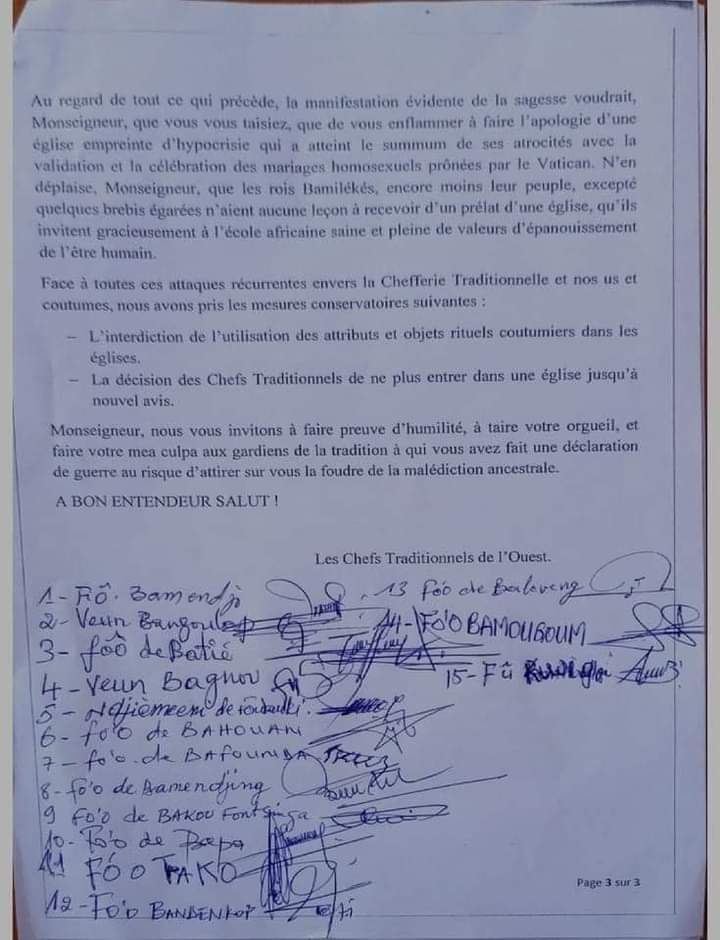 Au regard de tout ce qui précède, la manifestation évidente de la sagesse voudrait,
Monseigneur, que vous vous taisiez, que de vous enflammer à faire l'apologie d'une
église empreinte d'hypocrisie qui a atteint le summum de ses atrocités avec la
validation et la célébration des mariages homosexuels prônées par le Vatican. N'en
déplaise, Monseigneur, que les rois Bamilékés, encore moins leur peuple, excepté
quelques brebis égarées n'aient aucune leçon à recevoir d'un prélat d'une église, qu'ils
invitent gracieusement à l'école africaine saine et pleine de valeurs d'épanouissement
de l'être humain.
Face à toutes ces attaques récurrentes envers la Chefferie Traditionnelle et nos us et
coutumes, nous avons pris les mesures conservatoires suivantes :
– L'interdiction de l'utilisation des attributs et objets rituels coutumiers dans les
églises.
– La décision des Chefs Traditionnels de ne plus entrer dans une église jusqu'à
nouvel avis.
Monseigneur, nous vous invitons à faire preuve d'humilité, à taire votre orgueil, et
faire votre mea culpa aux gardiens de la tradition à qui vous avez fait une déclaration
de guerre au risque d'attirer sur vous la foudre de la malédiction ancestrale.
A BON ENTENDEUR SALUT !
Les Chefs Traditionnels de l'Ouest.
1- Fô. Bamendjo
2- Veun Bangoulap
3- fôô de Batié
4- Veun Bagnou
5- de
6- fo'o de BAHOUAN
7- fo'o de BAFOUNDA
8- fô'o de Bamendjing
9 Fo'o de BAKOU
10- Fo'o de Bapa
11 FÔO TAKO
12- Fo'o BANDENKOP
13 fôo de Baleveng
14- FO'O BAMOUGOUM
15- Fû
Page 3 sur 3